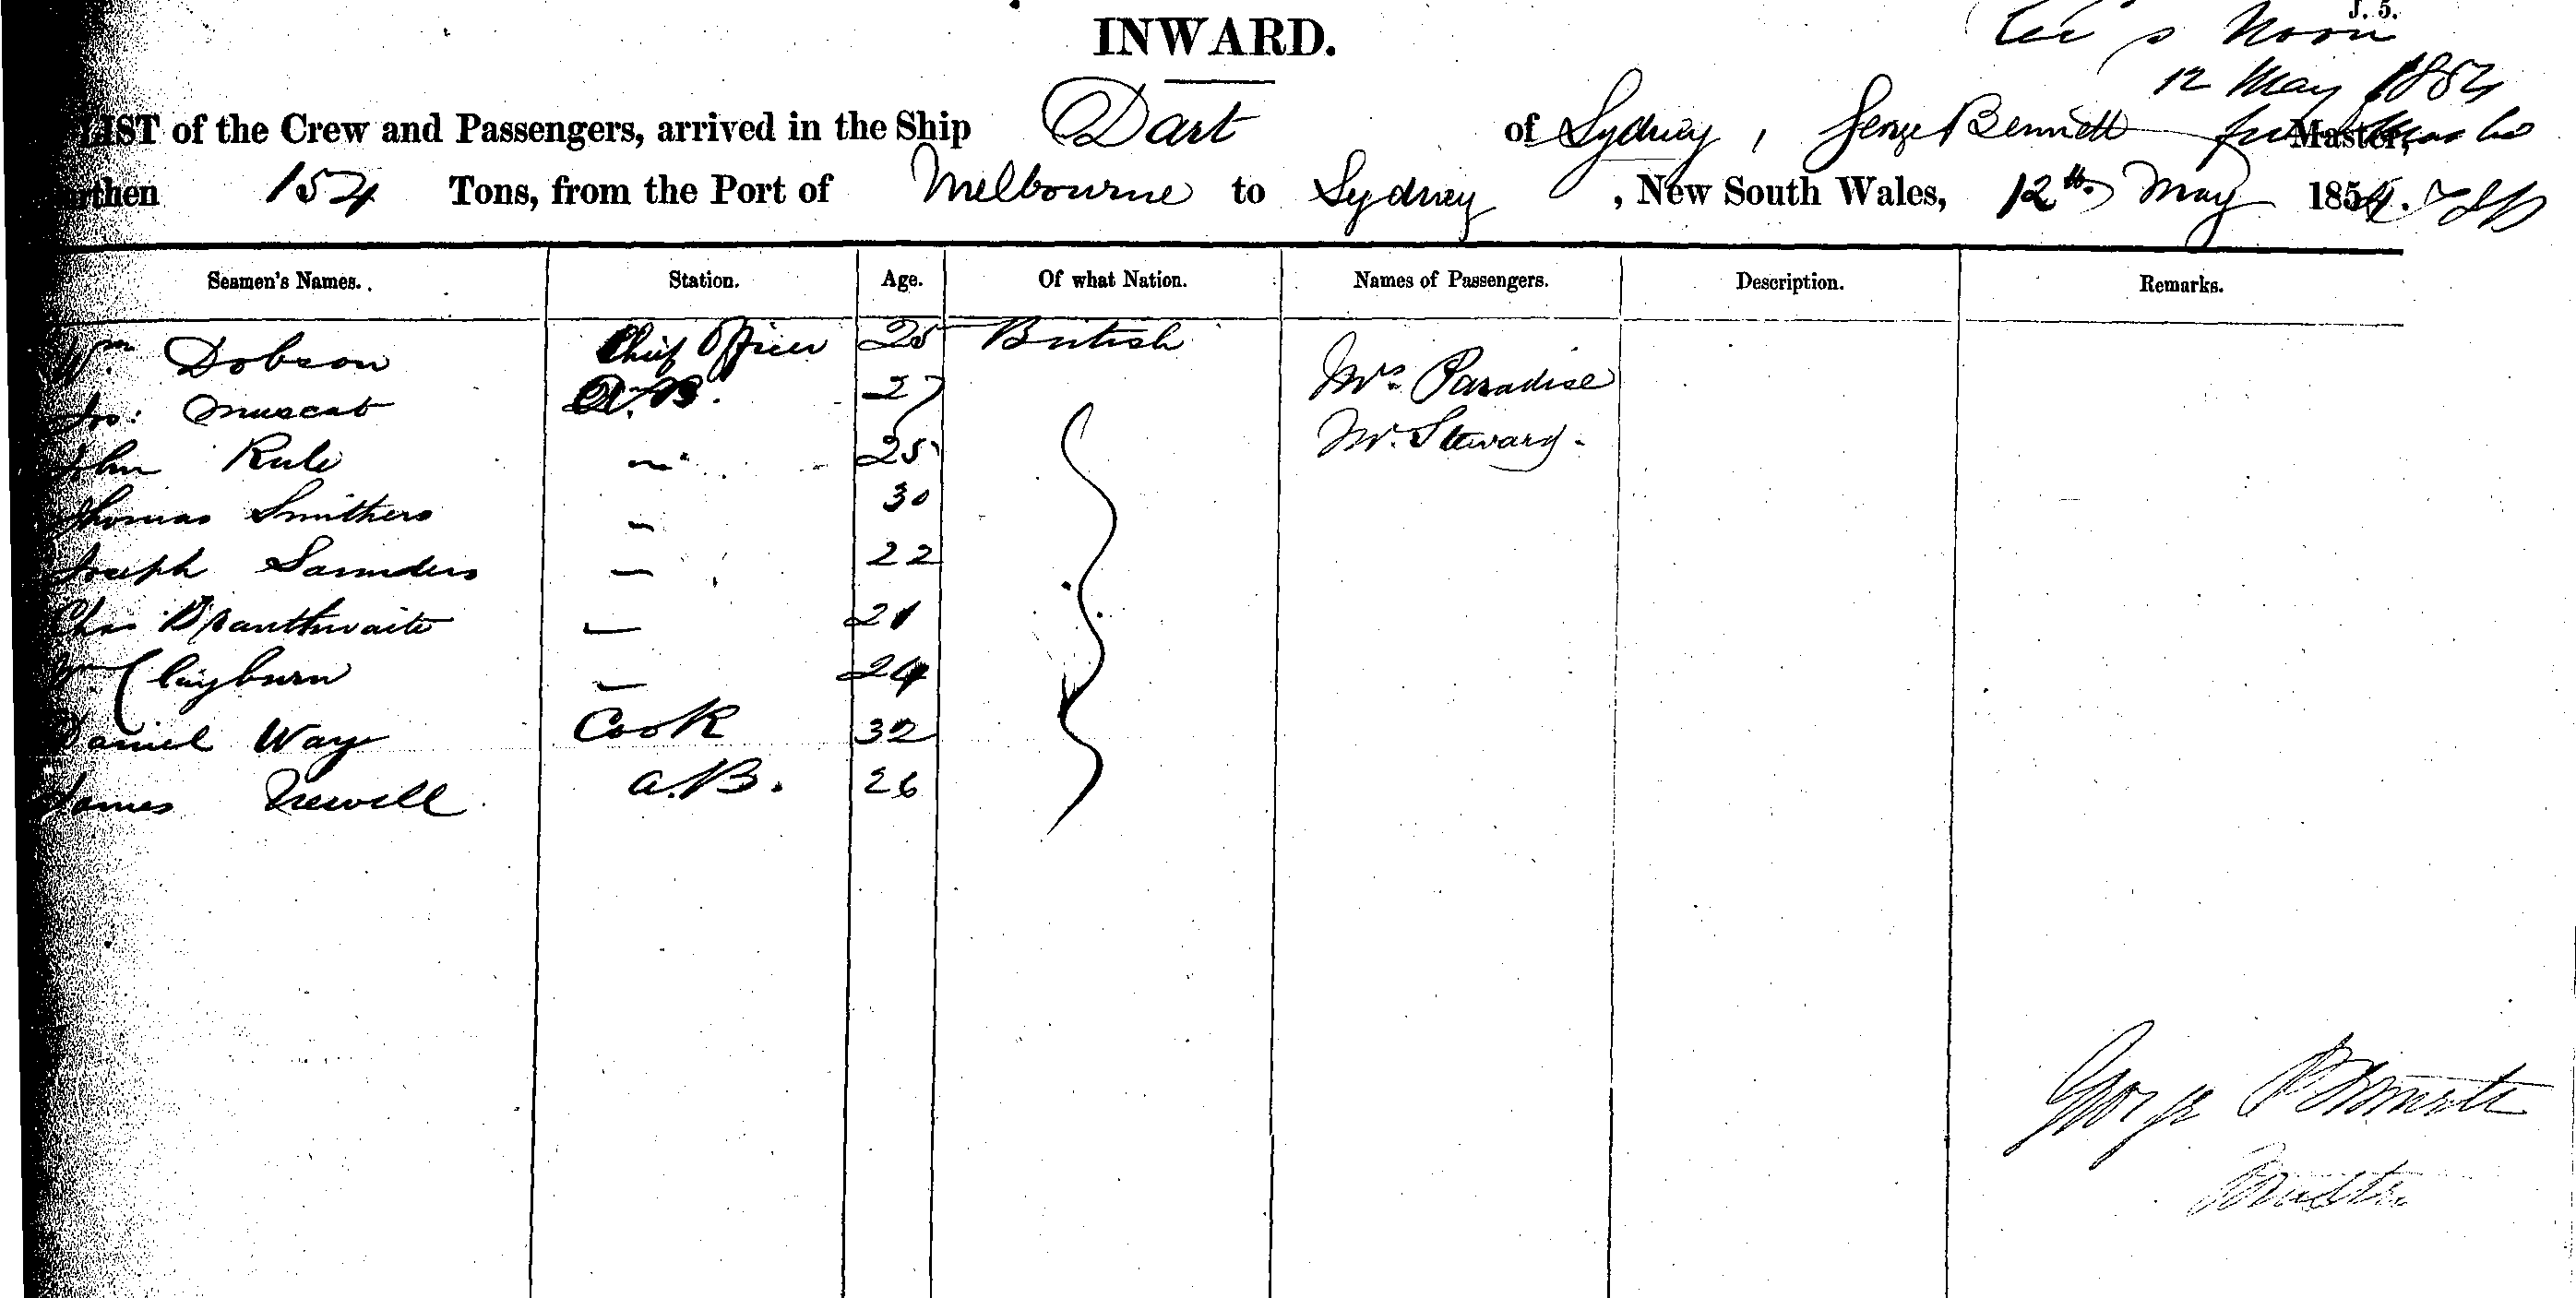 J. 5.
INWARD.
Noon
12 May 1854
LIST of the Crew and Passengers, arrived in the Ship Dart of Sydney, George Bennett Master,
Burthen 154 Tons, from the Port of Melbourne to Sydney, New South Wales, 12th. May 1854.
Seamen's Names. Station. Age. Of what Nation. Names of Passengers. Description. Remarks.
Wm Dobson Chief Officer 25 British Mrs Paradise
Jos: Muscat A.B. 27 Mr. Steward
John Rule — 25
Thomas Smithers — 30
Joseph Saunders — 22
Chas Branthwaite — 21
Wm Clayburn — 24
Daniel Way Cook 32
James Trewell A.B. 26
George Bennett
Master